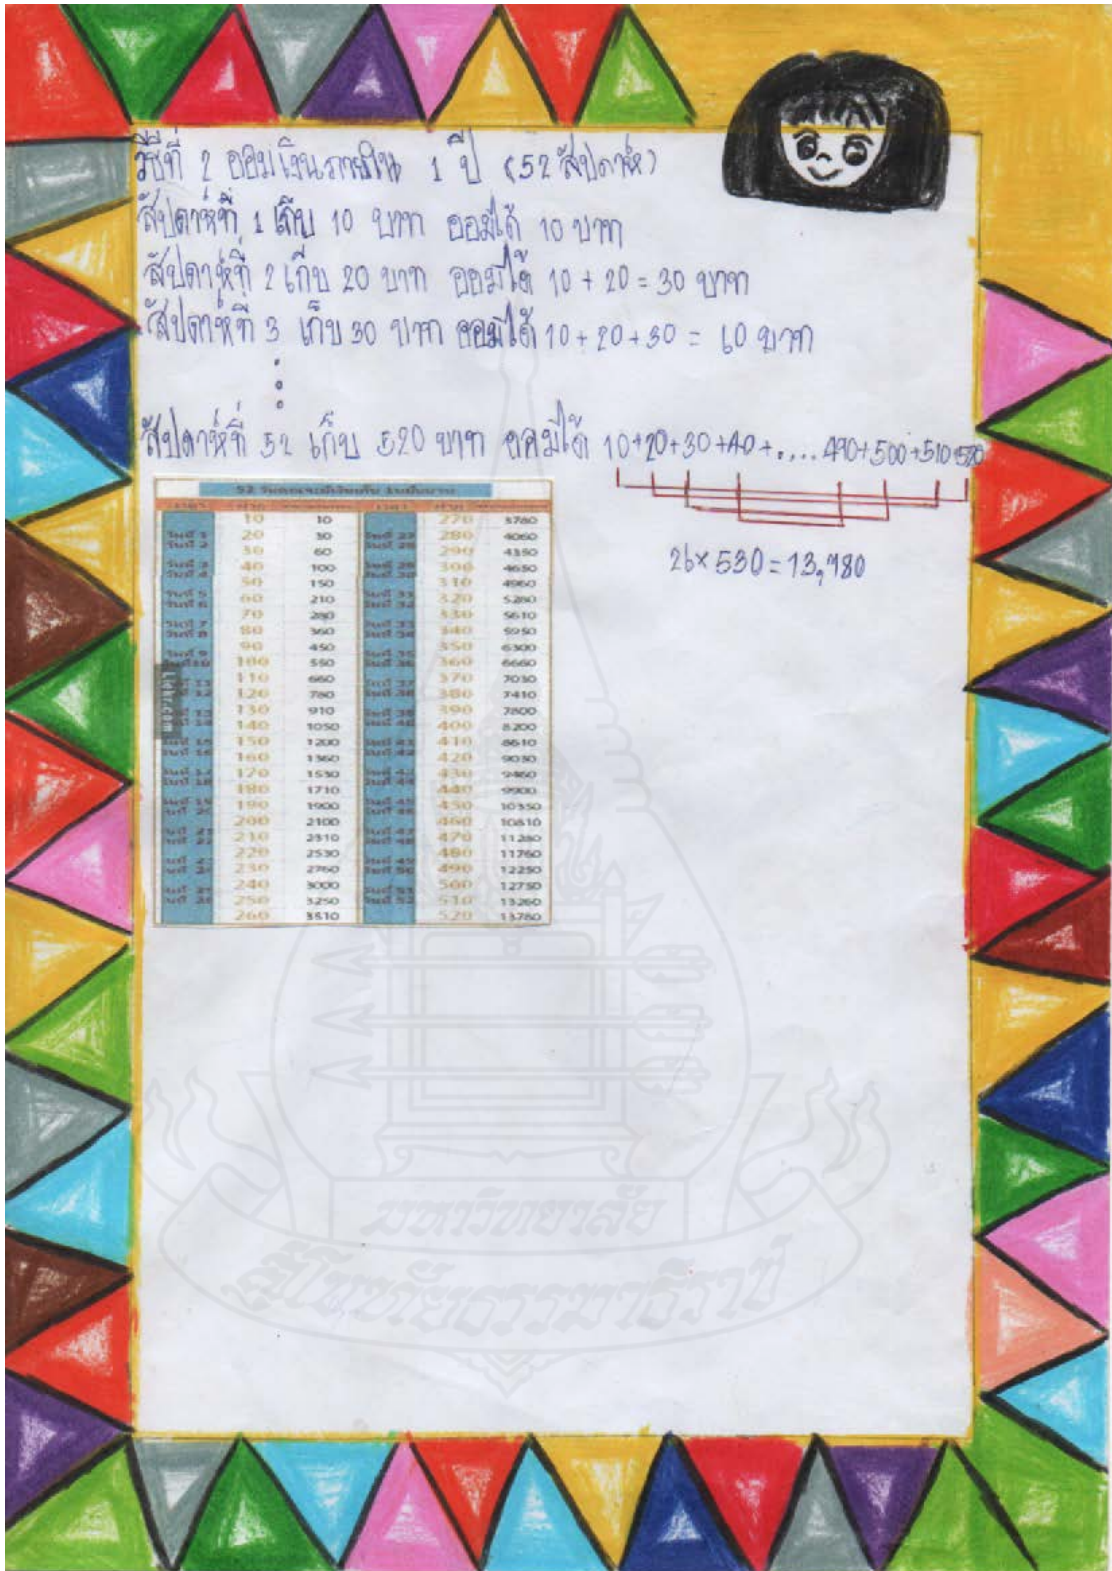 วิธีที่ 2 ออมเงินภายใน 1 ปี (52 สัปดาห์)
สัปดาห์ที่ 1 เก็บ 10 บาท ออมได้ 10 บาท
สัปดาห์ที่ 2 เก็บ 20 บาท ออมได้ 10 + 20 = 30 บาท
สัปดาห์ที่ 3 เก็บ 30 บาท ออมได้ 10 + 20 + 30 = 60 บาท
สัปดาห์ที่ 52 เก็บ 520 บาท ออมได้ 10+20+30+40+.... 490+500+510+520
26 × 530 = 13,780
10 10 270 3780
20 30 280 4060
30 60 290 4350
40 100 300 4650
50 150 310 4960
60 210 320 5280
70 280 330 5610
80 360 340 5950
90 450 350 6300
100 550 360 6660
110 660 370 7030
120 780 380 7410
130 910 390 7800
140 1050 400 8200
150 1200 410 8610
160 1360 420 9030
170 1530 430 9460
180 1710 440 9900
190 1900 450 10350
200 2100 460 10810
210 2310 470 11280
220 2530 480 11760
230 2760 490 12250
240 3000 500 12750
250 3250 510 13260
260 3510 520 13780
มหาวิทยาลัย
สุโขทัยธรรมาธิราช